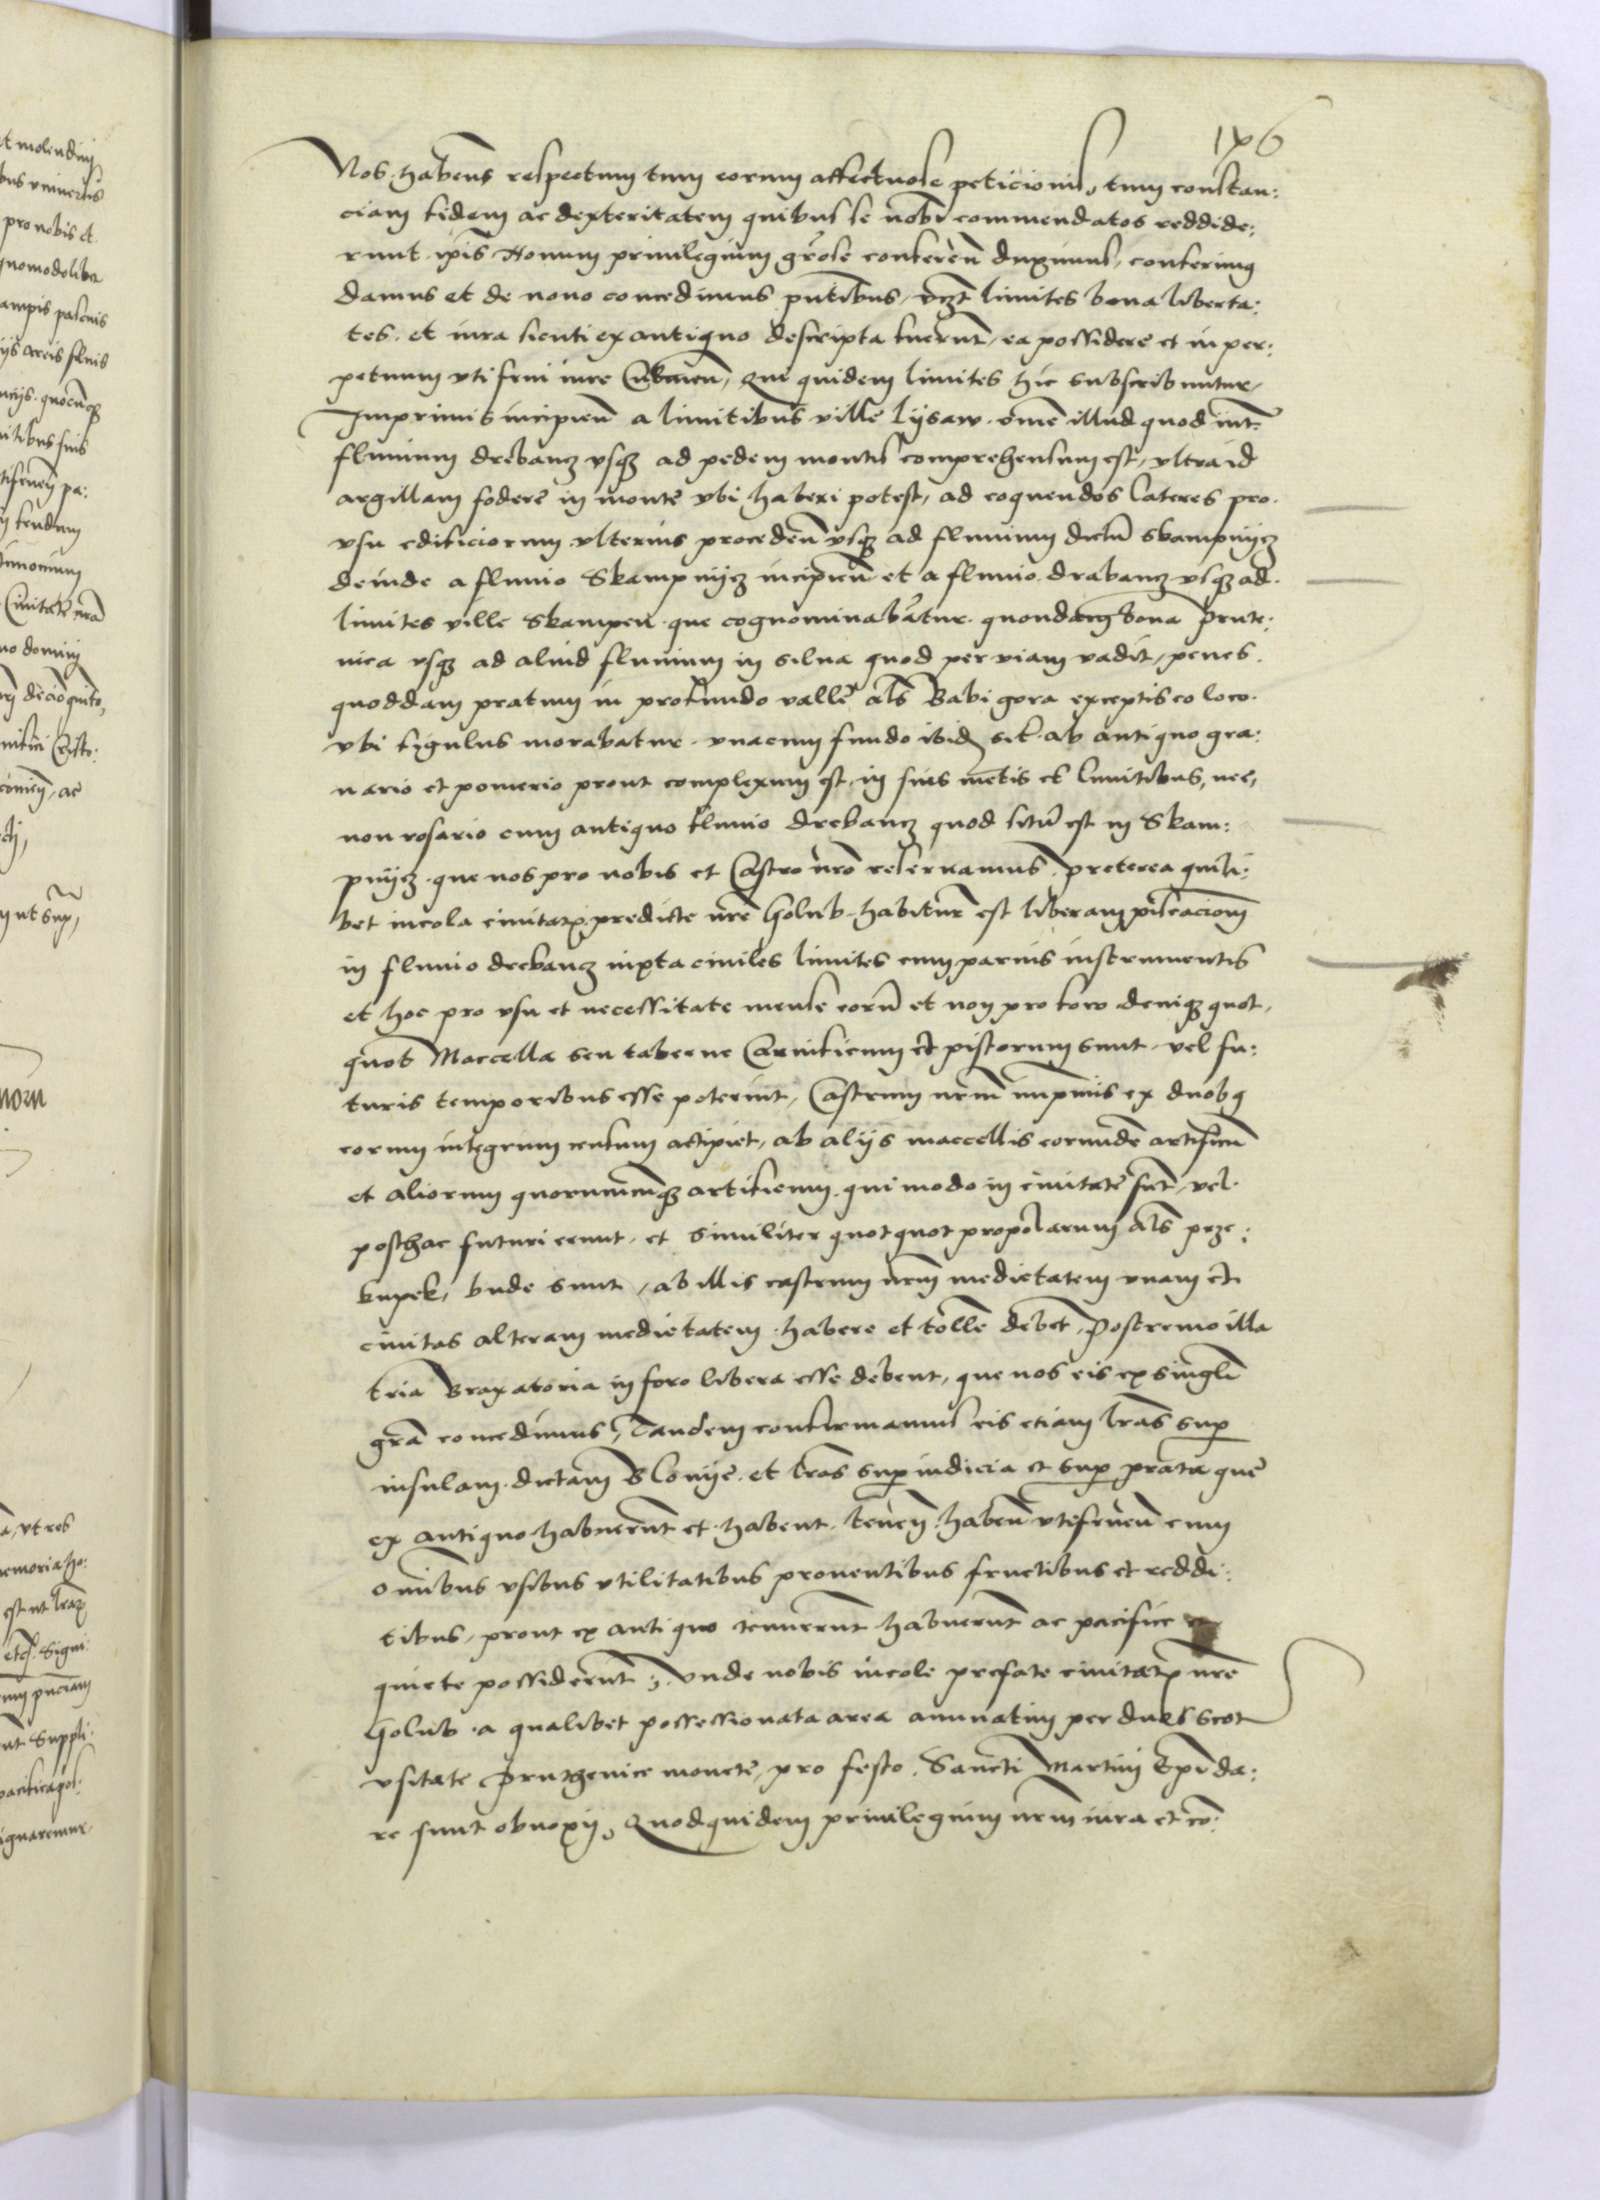 196
Nos habens respectum tum eorum affectuose peticionis, tum constan:
ciam fidem ac dexteritatem quibus se nobis commendatos reddide:
runt ipis Nouum priuilegium grōse conferen duximus, conferimus
damus et de nouo concedimus pntibus, vczt limites bona liberta:
tes et iura sicuti ex antiquo descripta fuerunt, ea possidere et in per:
petuum vti frui iure Culmen, Qui quidem limites hic subscribuntur,
Imprimis incipien a limitibus ville Lysaw omne illud quod int
fluuium drebancz vsqz ad pedem montis comprehensum est, vltra id
argillam fodere in monte vbi haberi potest, ad coquendos lateres pro
vsu edificiorum vlterius proceden vsqz ad fluuium dictu Skampnycz
deinde a fluuio Skampnycz incipien et a fluuio drabancz vsqz ad
limites ville Skampen que cognominabatur quondam bona Prute:
nica vsqz ad aliud fluuium in silua quod per viam vadit, penes
quoddam pratum in profundo valle als Babi gora exceptis eo loco
vbi figulus morabatur vnacum fundo ibidem sit ab antiquo gra:
nario et pomerio prout complexum est, in suis metis et limitibus, nec,
non rosario cum antiquo fluuio drebancz quod situ est in Skam:
pnycz que nos pro nobis et Castro nro reseruamus, preterea quili:
bet incola ciuitatis predicte nre Golub habitur est liberam piscacionem
in fluuio drebancz iuxta ciuiles limites cum paruis instrumentis
et hoc pro vsu et necessitate mense eorum et non pro foro deniqz quot,
quot Maccella seu taberne Carnificum et pistorum sunt vel fu:
turis temporibus esse poterint, Castrum nrm inprimis ex duobus
eorum integrum censum accipiet, ab aliis maccellis eorunde artificum
et aliorum quorumcunqz artificum qui modo in ciuitate sunt, vel
posthac futuri erunt, et similiter quotquot propolarum als prze:
kupek, bude sunt, ab illis castrum nrm medietatem vnam et
ciuitas alteram medietatem habere et tolle debet, Postremo illa
tria Braxatoria in foro libera esse debent, que nos eis ex singli
gra concedimus, Tandem confirmamus eis etiam lras sup
insulam dictam Slonye et lras sup iudicia et sup prata que
ex antiquo habuerunt et habent tenen haben vtifruen cum
omibus vsibus vtilitatibus prouentibus fructibus et reddi:
tibus, prout ex antiquo tenuerunt habuerunt ac pacifice et
quiete possiderunt, Vnde nobis incole prefate ciuitatis nre
Golub a qualibet possessionata area annuatim per duos scot
vsitate Prutgenice monete, pro festo Sancti Martini Epi da:
re sunt obnoxii, Quodquidem priuilegium nrm iura et co: